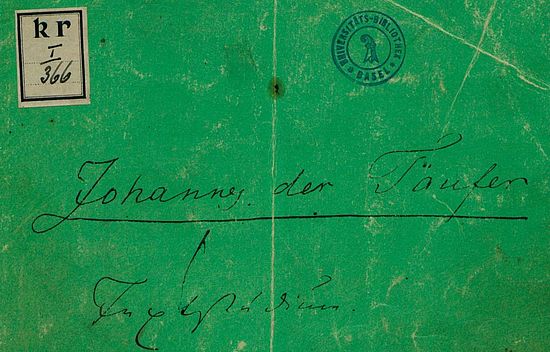 kr
I
366
UNIVERSITÄTS-BIBLIOTHEK BASEL
Johannes der Täufer
Textstudium.